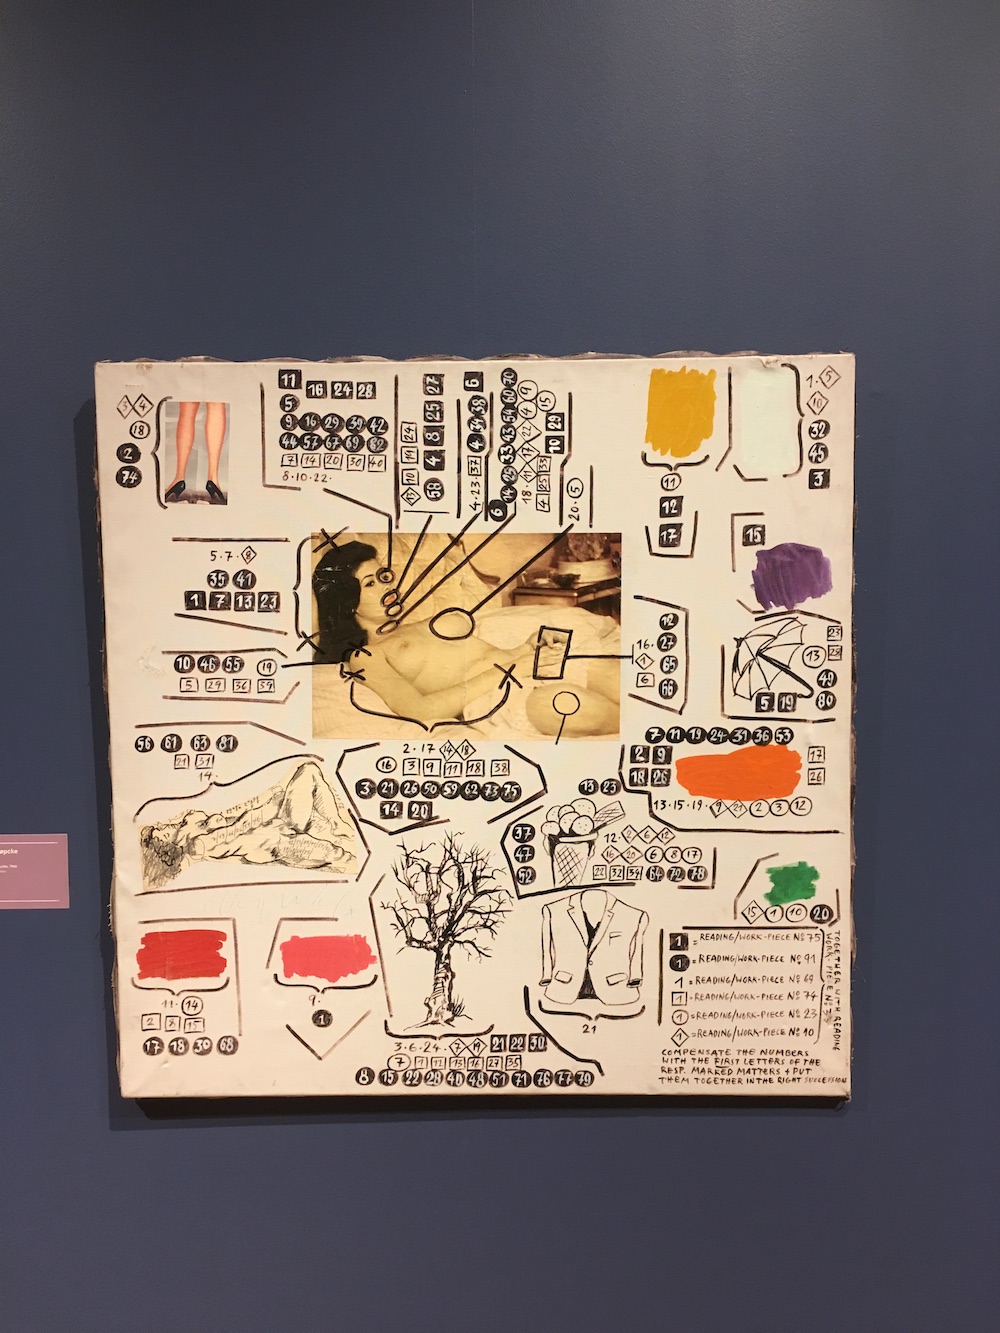 3 4
18
2
74
11 16 24 28
5
9 16 29 39 42
44 57 67 69 82
7 14 20 30 40
8·10·22·
58 4 8 25 27
4·23·37 4 34 38 6
6 14 25 33 43 54 60 70
18·11 17 22 4 9
4 25 33 10 29
15
20·5
11
12
17
1·5
10
32
45
3
15
5·7·8
35 41
1 7 13 23
10 46 55 19
5 29 36 39
12
16· 27
1 65
6 66
23
13 28
49
5 19 80
56 61 63 81
21 31
14·
2·17 14 18
16 3 9 11 18 38
3 21 26 50 59 62 73 75
14 20
7 11 19 24 31 36 53
2 9 17
18 26 26
13·15·19· 9 21 2 3 12
13 23
37
47
52
12· 2 6 12
16 20 6 8 17
22 32 34 64 72 78
15 1 10 20
11· 14
2 8 15
17 18 30 68
9·
1
3·6·24· 7 19 21 22 30
7 1 12 13 16 27 35
8 15 22 28 40 48 51 71 76 77 79
21
1 = READING/WORK-PIECE Nº 75
1 = READING/WORK-PIECE Nº 91
1 = READING/WORK-PIECE Nº 69
1 = READING/WORK-PIECE Nº 74
1 = READING/WORK-PIECE Nº 23
1 = READING/WORK-PIECE Nº 10
TOGETHER WITH READING
WORK-PIECE Nº
COMPENSATE THE NUMBERS
WITH THE FIRST LETTERS OF THE
RESP. MARKED MATTERS + PUT
THEM TOGETHER IN THE RIGHT SUCCESSION